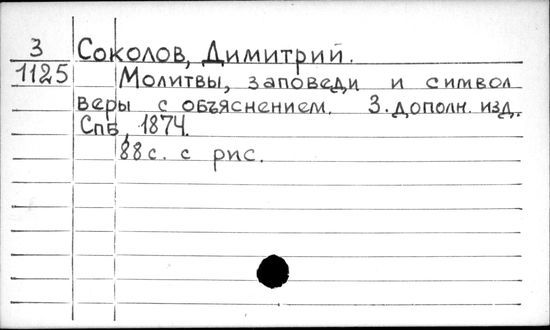 3 Соколов, Димитрий.
1125 Молитвы, заповеди и символ
веры с объяснением. 3. дополн. изд.
Спб, 1874.
88 с. с рис.